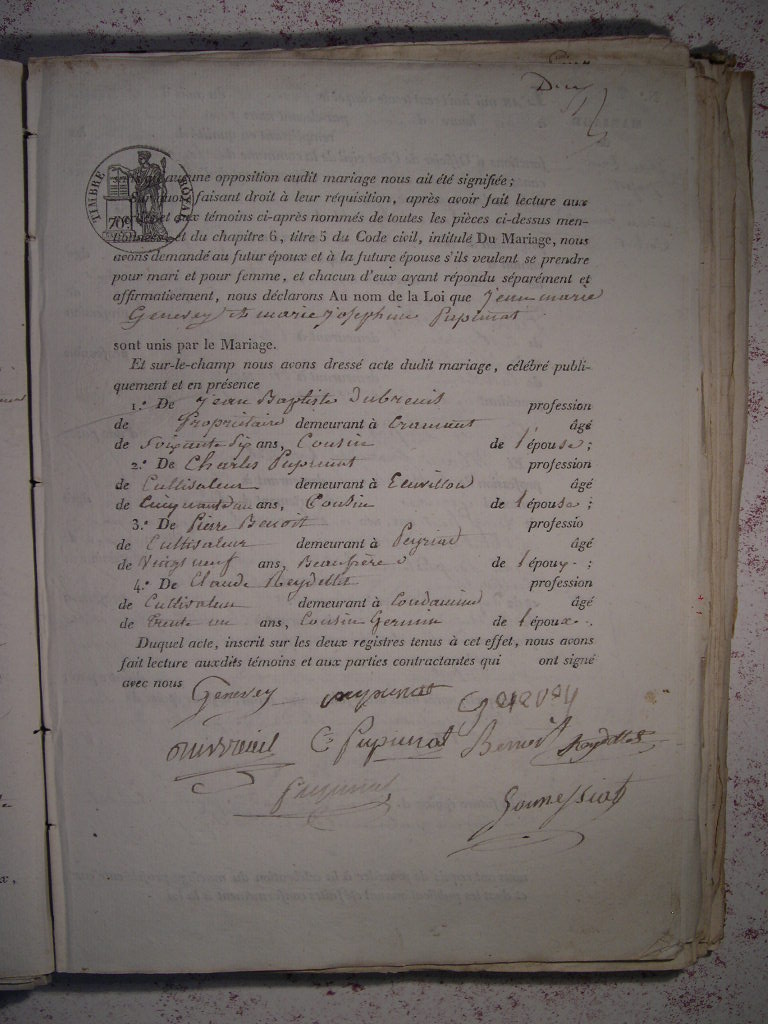 Deux
TIMBRE ROYAL
70c
aucune opposition audit mariage nous ait été signifiée ;
Sur quoi faisant droit à leur réquisition, après avoir fait lecture aux
et aux témoins ci-après nommés de toutes les pièces ci-dessus men-
tionnées et du chapitre 6, titre 5 du Code civil, intitulé Du Mariage, nous
avons demandé au futur époux et à la future épouse s'ils veulent se prendre
pour mari et pour femme, et chacun d'eux ayant répondu séparément et
affirmativement, nous déclarons Au nom de la Loi que Jean marie
Genevey et marie Josephine Pupunat
sont unis par le Mariage.
Et sur-le-champ nous avons dressé acte dudit mariage, célébré publi-
quement et en présence
1.° De Jean Baptiste Dubreuil profession
de Propriétaire demeurant à Cramant âgé
de Soixante Six ans, Cousin de l'épouse ;
2.° De Charles Pupunat profession
de Cultivateur demeurant à âgé
de ans, Cousin de l'épouse ;
3.° De Pierre Benoit professio
de Cultivateur demeurant à Peyriat âgé
de Vingt neuf ans, Beaufrère de l'époux ;
4.° De Claude Reydellet profession
de Cultivateur demeurant à Condamine âgé
de Trente un ans, Cousin Germain de l'époux .
Duquel acte, inscrit sur les deux registres tenus à cet effet, nous avons
fait lecture auxdits témoins et aux parties contractantes qui ont signé
avec nous Genevey pupunat Genevey
Dubreuil C. Pupunat Benoit Reydellet
Pupunat
Gounessiat